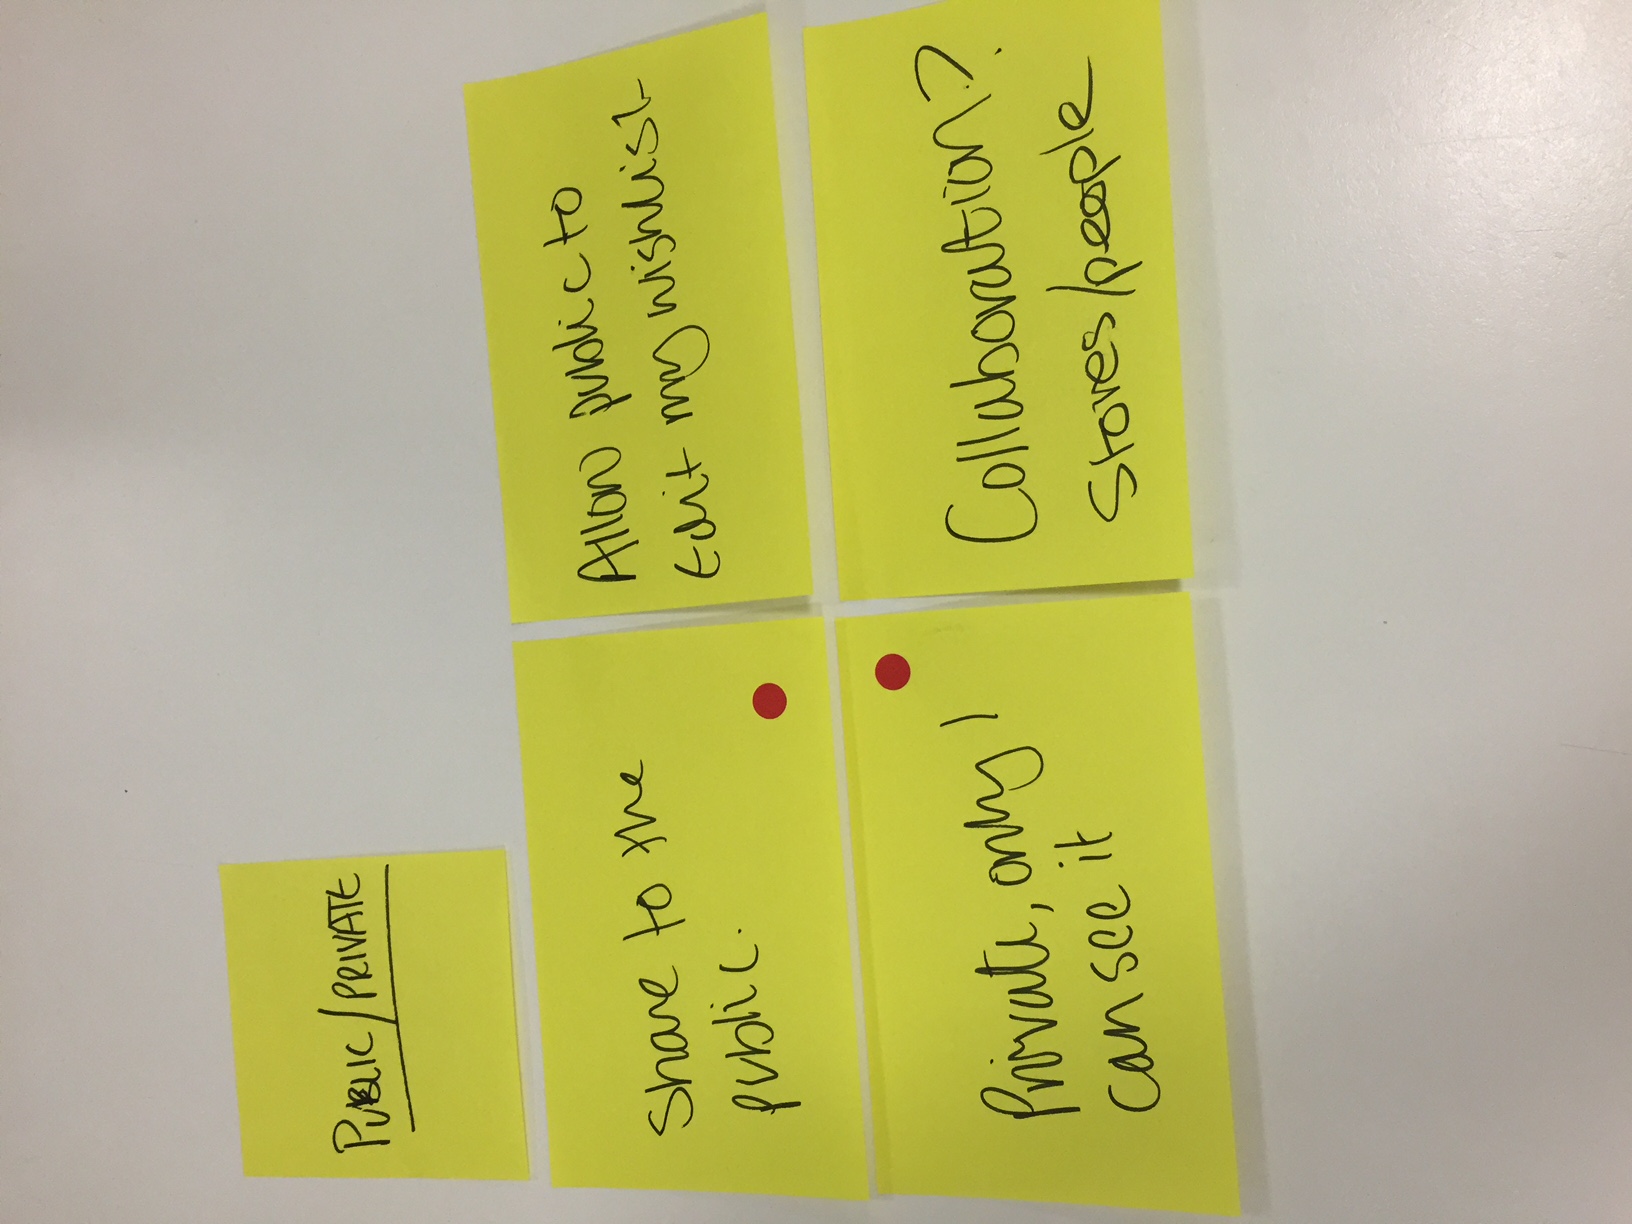 PUBLIC/PRIVATE
Share to the
public.
Allow public to
Edit my wishlist
Private, only I
can see it
Collaboration?
Stores/people